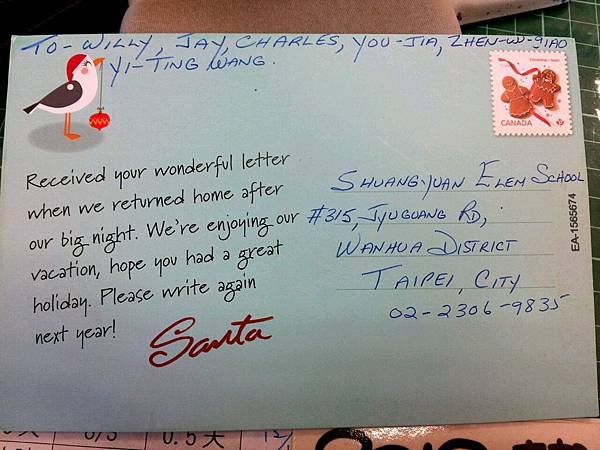 TO - WILLY, JAY, CHARLES, YOU-JIA, ZHEN-WU-
YI-TING WANG.
Christmas • Noël
CANADA
P
Received your wonderful letter
when we returned home after
our big night. We're enjoying our
vacation, hope you had a great
holiday. Please write again
next year!
Santa
SHUANG-YUAN ELEM SCHOOL
#315, JYUGUANG RD,
WANHUA DISTRICT
TAIPEI, CITY
02-2306-9835
EA-1565674
0.5天